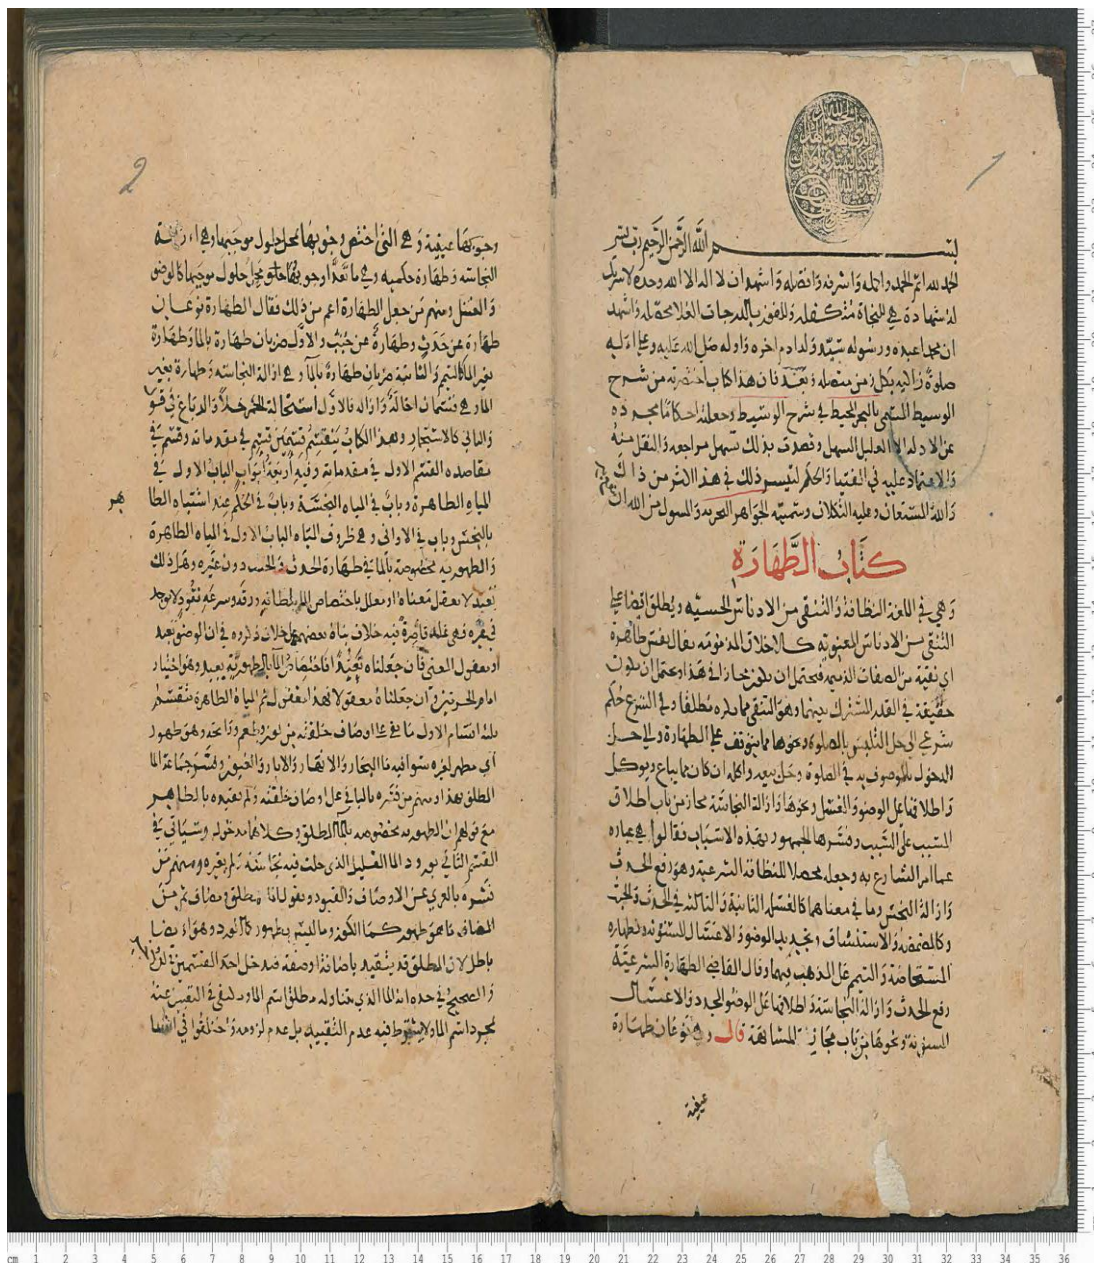 1
بسم الله الرحمن الرحيم رب يسر
الحمد لله اتم الحمد واكمله واشرفه وافضله واشهد ان لا اله الا الله وحده لا شريك
له شهادة هي للنجاة متكفله وللفوز بالدرجات العلا محصله واشهد
ان محمدا عبده ورسوله سيد ولد ادم اخره واوله صلى الله عليه وعلى اله
صلوة زاكيه بكل زمن متصله وبعد فان هذا كتاب اختصرته من شرح
الوسيط المسمى بالبحر المحيط في شرح الوسيط وجعلته احكاما مجرده
عن الادلة الا القليل السهل وقصدت بذلك تسهل مراجعه والنقل منه
والاعتماد عليه في الفتيا والحكم لتيسر ذلك في هذا اكثر من ذاك
والله المستعان وعليه التكلان وسميته الجواهر البحريه والمسول من الله ان
كتاب الطهارة
وهي في اللغة النظافة والتنقي من الادناس الحسيه ويطلق ايضا على
التنقي من الادناس المعنويه كالاخلاق المذمومه يقال نفس طاهرة
اي نقية من الصفات الذميمه فيحتمل ان يكون مجازا في هذا ويحتمل ان يكون
حقيقة في القدر المشترك بينهما وهو التنقي مما يكره مطلقا وفي الشرع حكم
شرعي الى حل التلبس بالصلوة ونحوها مما يتوقف على الطهارة والى حل
الدخول بالموصوف به في الصلوة وحل بيعه واكله ان كان مما يباع ويوكل
واطلاقها على الوضو والغسل ونحوها وازالة النجاسة مجاز من باب اطلاق
المسبب على السبب وفسرها الجمهور بهذه الاسباب فقالوا هي عباره
عما امر الشارع به وجعله محصلا للنظافة الشرعية وهو رفع الحدث
وازالة النجس وما في معناهما كالغسلة الثانية والثالثة في الحدث والخبث
وكالمضمضة والاستنشاق وتجديد الوضو والاغتسال المسنونه وطهاره
المستحاضة والتيمم على المذهب فيهما وقال القاضي الطهارة الشرعية
رفع الحدث وازالة النجاسة واطلاقها على الوضو المجدد والاغتسال
المسنونة ونحوها من باب مجاز المشابهة قال وهي نوعان طهارة
عينية
2
وجوبها عينية وهي التي اختص وجوبها بمحل حلول موجبها وهي ازالة
النجاسه وطهارة حكميه وهي ما تعدا وجوبها محل حلول موجبها كالوضو
والغسل ومنهم من جعل الطهارة اعم من ذلك فقال الطهارة نوعان
طهارة عن حدث وطهارة عن خبث والاول ضربان طهارة بالما وطهارة
بغير الما كالتيمم والثانية ضربان طهارة بالما وهي ازالة النجاسه وطهارة بغير
الما وهي قسمان احالة وازاله فالاول استحالة الخمر خلا والدباغ في قول
والثاني كالاستنجار وهذا الكتاب ينقسم قسمين قسم في مقدماته وقسم في
مقاصده القسم الاول في مقدماته وفيه اربعة ابواب الباب الاول في
المياه الطاهرة وباب في المياه النجسة وباب في الحكم عند اشتباه الطاهر
بالنجس وباب في الاواني وهي ظروف المياه الباب الاول في المياه الطاهرة
والطهوريه مخصوصة بالما في طهارة الحدث والخبث دون غيره وهل ذلك
تعبد لا يعقل معناه او معلل باختصاص الما بلطافه ورقه وسرعه نفود لا يوجد
في غيره فهي علة قاصرة فيه خلاف بناه بعضهم على خلاف ذكروه في ان الوضو تعبد
او معقول المعنى فان جعلناه تعبدا فاختصاص الما بالطهوريه تعبد وهو اختيار
امام الحرمين وان جعلناه معقولا فهذا معقول ثم المياه الطاهرة تنقسم
ثلثة اقسام الاول ما بقي على اوصاف خلقته من لون وطعم ورائحه وهو طهور
اي مطهر لغيره سوا فيه ما البحار والانهار والابار والعيون وفسر جماعة الما
المطلق بهذا ومنهم من فسره بالباقي على اوصاف خلقته ولم يقيده بالطاهر
مع قولهم ان الطهوريه مخصوصه بالما المطلق وكلاهما مدخول وسياتي في
القسم الثاني يورد الما القليل الذي حلت فيه نجاسة ولم يغيره ومنهم من
فسره بالعري عن الاوصاف والقيود ويقول الما مطلق ومضاف ثم من
المضاف ما هو طهور كما الكوز وما ليس بطهور كالورد وهو ايضا
باطل لان المطلق قد يتقيد باضافة او صفة فيدخل احد القسمين في
والصحيح في حده انه الما الذي يتناوله مطلق اسم الما ويكفي في التعبير عنه
بمجرد اسم الما ولا يشترط فيه عدم التقييد بل عدم لزومه واختلفوا في الما